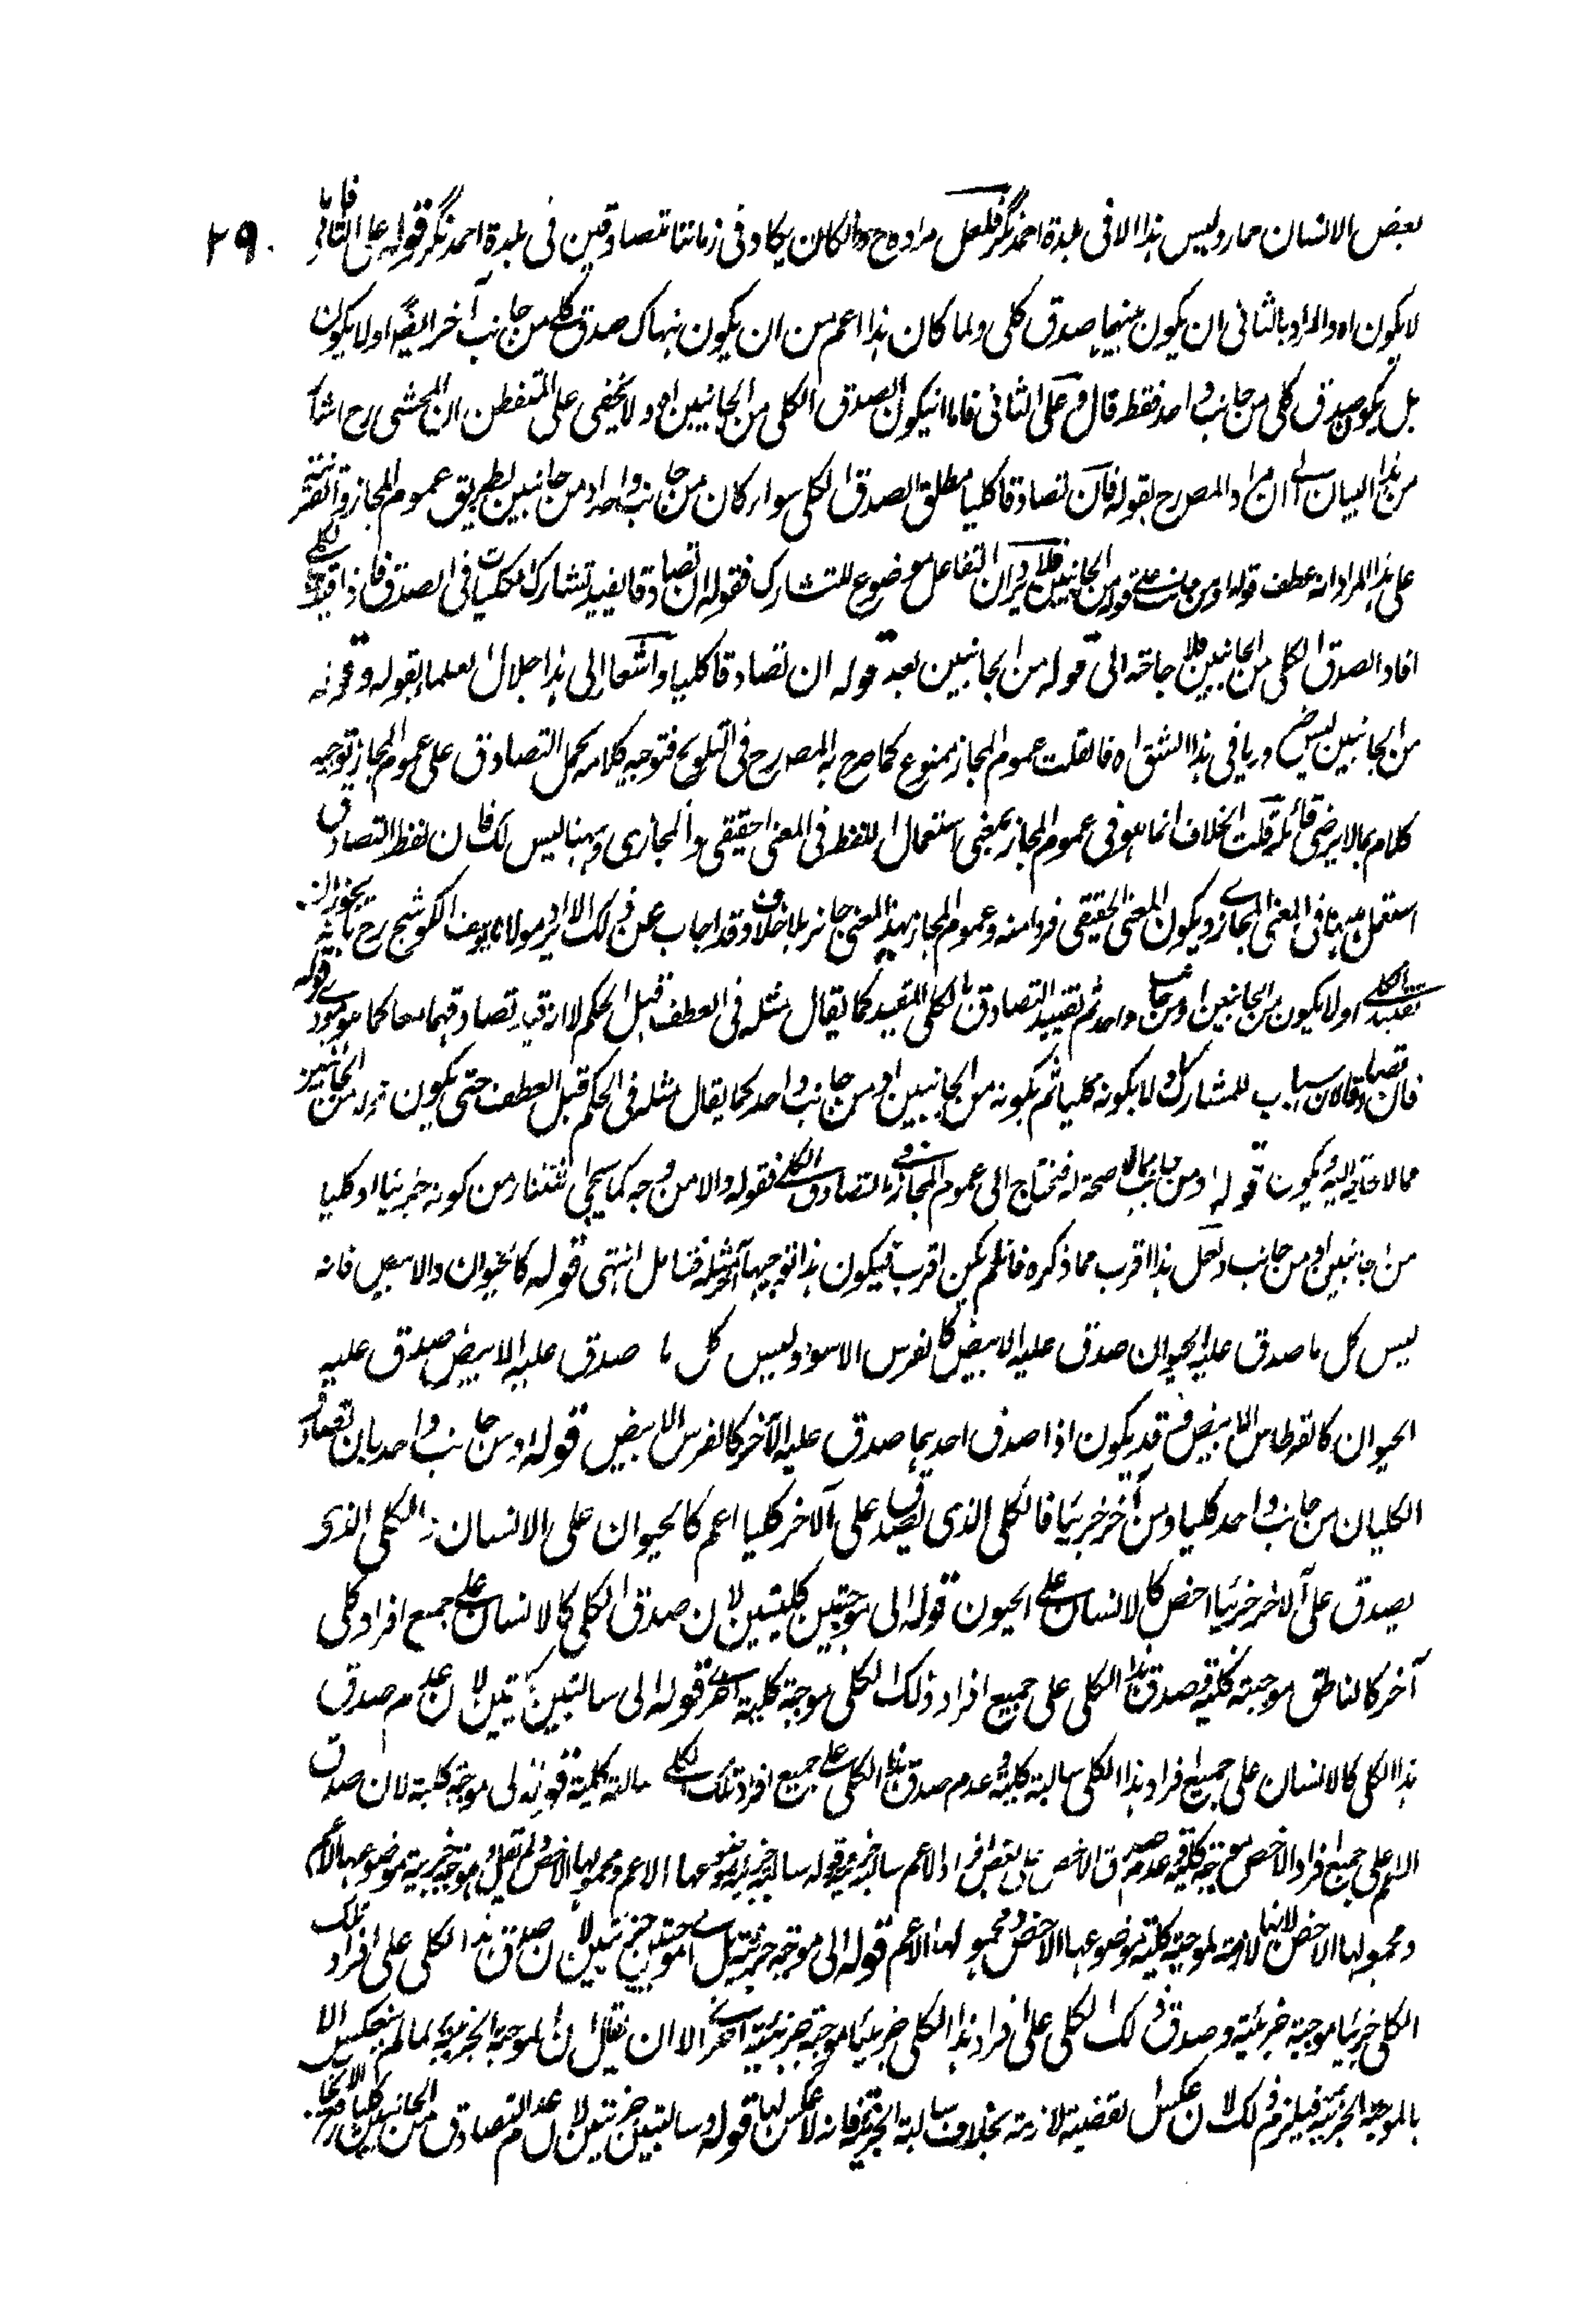 بعض الانسان حمار وليس هذا الا فى بلدة احمد نگر فلعل مراده ح والكان يكاد فى زماننا تتصادقين فى بلدة احمد نگر قوله على الثانى فاما
٢٩٠
لا يكون اه والمراد بالثانى ان يكون بينهما صدق كلى ولما كان هذا اعم من ان يكون هناك صدق كلى من جانب آخر ايضا اولا يكون
بل يكون صدق كلى من جانب واحد فقط قال وعلى الثانى فاما ان يكون الصدق الكلى من الجانبين اه ولا يخفى على المتفطن ان المحشى رح اشار
من هذا البيان الى ان مراد المصرح بقوله فان تصادقا كليا مطلق الصدق الكلى سواء كان من جانب واحد او من جانبين بطريق عموم المجاز والقرينة
على هذا المراد انه عطف قوله او من جانب على قوله من الجانبين فلا يرد ان التفاعل موضوع للتشارك فقوله ان تصادقا يفيد تشارك الكليات فى الصدق فاذا قيد بالكلى
افاد الصدق الكلى من الجانبين فلا حاجة الى قوله من الجانبين بعد قوله ان تصادقا كليا واشعارا الى هذا
من الجانبين ليس ضروريا فى هذا الشق اه فان قلت عموم المجاز ممنوع كما صرح به المصرح فى التلويح فتوجيه كلامه بحمل التصادق على عموم المجاز توجيه
كلام بما لا يرضى قائله قلت الخلاف انما هو فى عموم المجاز بمعنى استعمال اللفظ فى المعنى الحقيقى والمجازى وههنا ليس كك فان لفظ التصادق
استعمل ههنا فى المعنى المجازى ويكون المعنى الحقيقى فردا منه وعموم المجاز بهذا المعنى جائز بلا خلاف وقد اجاب عن ذلك الايراد مولانا يوسف الكوسج رح بانه يجوز ان
تقييد الكلى اولا بكون من الجانبين او من جانب واحد ثم تقييد التصادق بالكلى المقيد كما يقال مثله فى العطف قبل الحكم لا ان قيد تصادقهما معا كما هو مؤدى قوله
فان تصادقا لان باب للمشاركة اولا بكونه كليا ثم بكونه من الجانبين او من جانب واحد كما يقال مثله فى الحكم قبل العطف حتى يكون قوله من الجانبين
مما لا حاجة اليه ويكون قوله او من جانب مما لا صحة له فنحتاج الى عموم المجاز فى التصادق الكلى فقوله والا من وجه كما سيجئ استثناء من كونه جزئيا او كليا
من جانبين او من جانب ولعل هذا اقرب مما ذكره فان لم يكن اقرب فيكون هذا توجيها آخر مثله فتامل انتهى قوله كالحيوان والابيض فانه
ليس كل ما صدق عليه الحيوان صدق عليه الابيض كالفرس الاسود وليس كل ما صدق عليه الابيض صدق عليه
الحيوان كالقرطاس الابيض فقد يكون اذا صدق احدهما صدق عليه الآخر كالفرس الابيض قوله او من جانب واحد بان تصادق
الكليان من جانب واحد كليا ومن آخر جزئيا فالكلى الذى يصدق على الآخر كليا اعم كالحيوان على الانسان والكلى الذى
يصدق على الآخر جزئيا اخص كالانسان على الحيوان قوله الى موجبتين كليتين لان صدق الكلى كالانسان على جميع افراد كلى
آخر كالناطق موجبة كلية وصدق هذا الكلى على جميع افراد ذلك الكلى موجبة كلية اخرى قوله الى سالبتين كليتين لان عدم صدق
هذا الكلى كالانسان على جميع افراد هذا الكلى سالبة كلية وعدم صدق هذا الكلى على جميع افراد تلك الكلى سالبة كلية قوله الى موجبة كلية لان صدق
الاعم على جميع افراد الاخص موجبة كلية وعدم صدق الاخص على بعض افراد الاعم سالبة جزئية قوله سالبة جزئية موضوعها الاعم ومحمولها الاخص ولم يقل وموجبة جزئية موضوعها الاعم
ومحمولها الاخص لانها لازمة لموجبة كلية موضوعها الاخص ومحمولها الاعم قوله الى موجبة جزئية بل الى موجبتين جزئيتين لان صدق هذا الكلى على افراد تلك
الكلى جزئيا موجبة جزئية وصدق ذلك الكلى على افراد هذا الكلى جزئيا موجبة جزئية اخرى الا ان يقال ان الموجبة الجزئية لما لم ينعكس الا
بالموجبة الجزئية فيلزم ذلك لان عكس القضية لازمة بخلاف سالبة الجزئية فانه لا عكس لها قوله وسالبتين جزئيتين لان عدم التصادق من الجانبين كليا